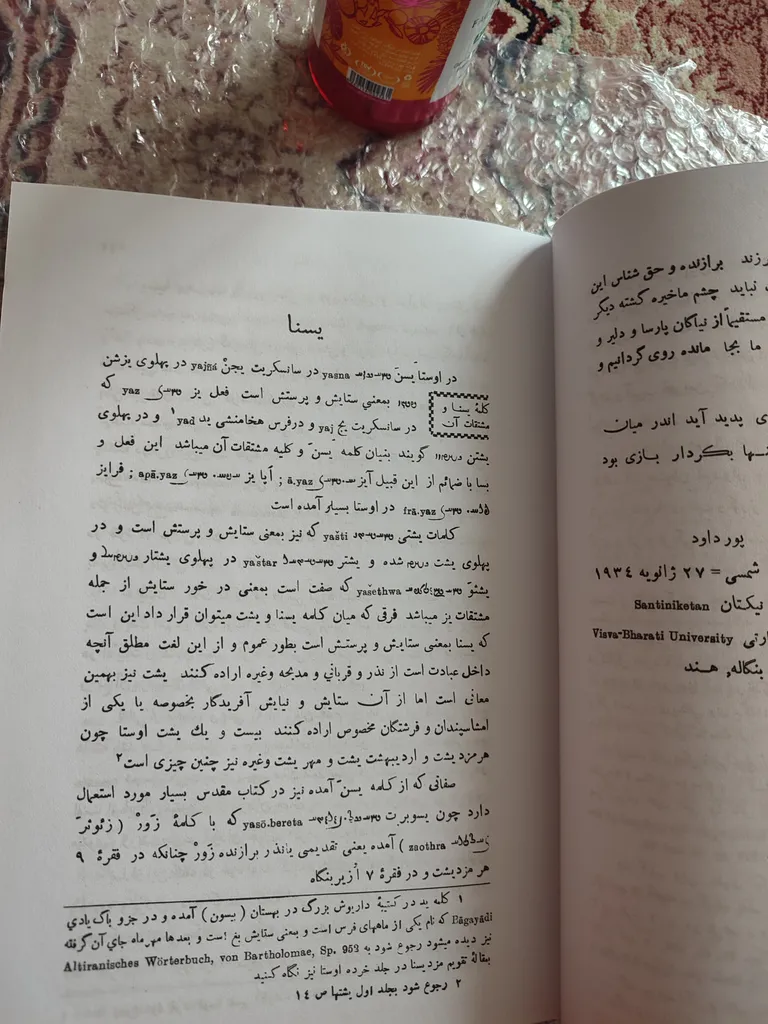 یسنا
در اوستا یسنَ yasna در سانسکریت یجنْ yajña در پهلوی یزشن
کلمۀ یسنا و
مشتقات آن
بمعنی ستایش و پرستش است فعل یز yaz که
در سانسکریت یج yaj و درفرس هخامنشی ید yad ۱ و در پهلوی
یشتن گویند بنیان کلمه یسنَ و کلیه مشتقات آن میباشد این فعل و
بسا با ضمائم از این قبیل آیز ā.yaz ; اَپا یز apā.yaz ; فرایز
frā.yaz در اوستا بسیار آمده است
کلمات یشتی yašti که نیز بمعنی ستایش و پرستش است و در
پهلوی یشت شده و یشتر yaštar در پهلوی یشتار و
یشثوَ yašethwa که صفت است بمعنی در خور ستایش از جمله
مشتقات یز میباشد فرقی که میان کلمه یسنا و یشت میتوان قرار داد این است
که یسنا بمعنی ستایش و پرستش است بطور عموم و از این لغت مطلق آنچه
داخل عبادت است از نذر و قربانی و مدیحه وغیره اراده کنند یشت نیز بهمین
معانی است اما از آن ستایش و نیایش آفریدگار بخصوصه یا یکی از
امشاسپندان و فرشتگان مخصوص اراده کنند بیست و یك یشت اوستا چون
هرمزد یشت و اردیبهشت یشت و مهر یشت وغیره نیز چنین چیزی است۲
صفاتی که از کلمه یسنَ آمده نیز در کتاب مقدس بسیار مورد استعمال
دارد چون یسوبرت yasō.bereta که با کلمۀ زَورْ ( زئوثرَ
zaothra ) آمده یعنی تقدیمی یانذر برازنده زَورْ چنانکه در فقرۀ ۹
هرمزدیشت و در فقرۀ ۷ اَزیربنگاه
۱ کلمه ید در کتیبۀ داریوش بزرگ در بهستان ( بیسون ) آمده و در جزو باگ یادی
Bāgayādi که نام یکی از ماههای فرس است و بمعنی ستایش بغ است و بعدها مهرماه جای آن گرفته
نیز دیده میشود رجوع شود به Altiranisches Wörterbuch, von Bartholomae, Sp. 953
بمقالۀ تقویم مزدیسنا در جلد خرده اوستا نیز نگاه کنید
۲ رجوع شود بجلد اول یشتها ص ۱٤
برازنده و حق شناس این
نباید چشم ماخیره گشته دیگر
مستقیماً از نیاکان پارسا و دلیر و
ما بجا مانده روی گردانیم و
پدید آید اندر میان
بکردار بازی بود
پور داود
شمسی = ۲۷ ژانویه ۱۹۳٤
Santiniketan
Visva-Bharati University
بنگاله, هند